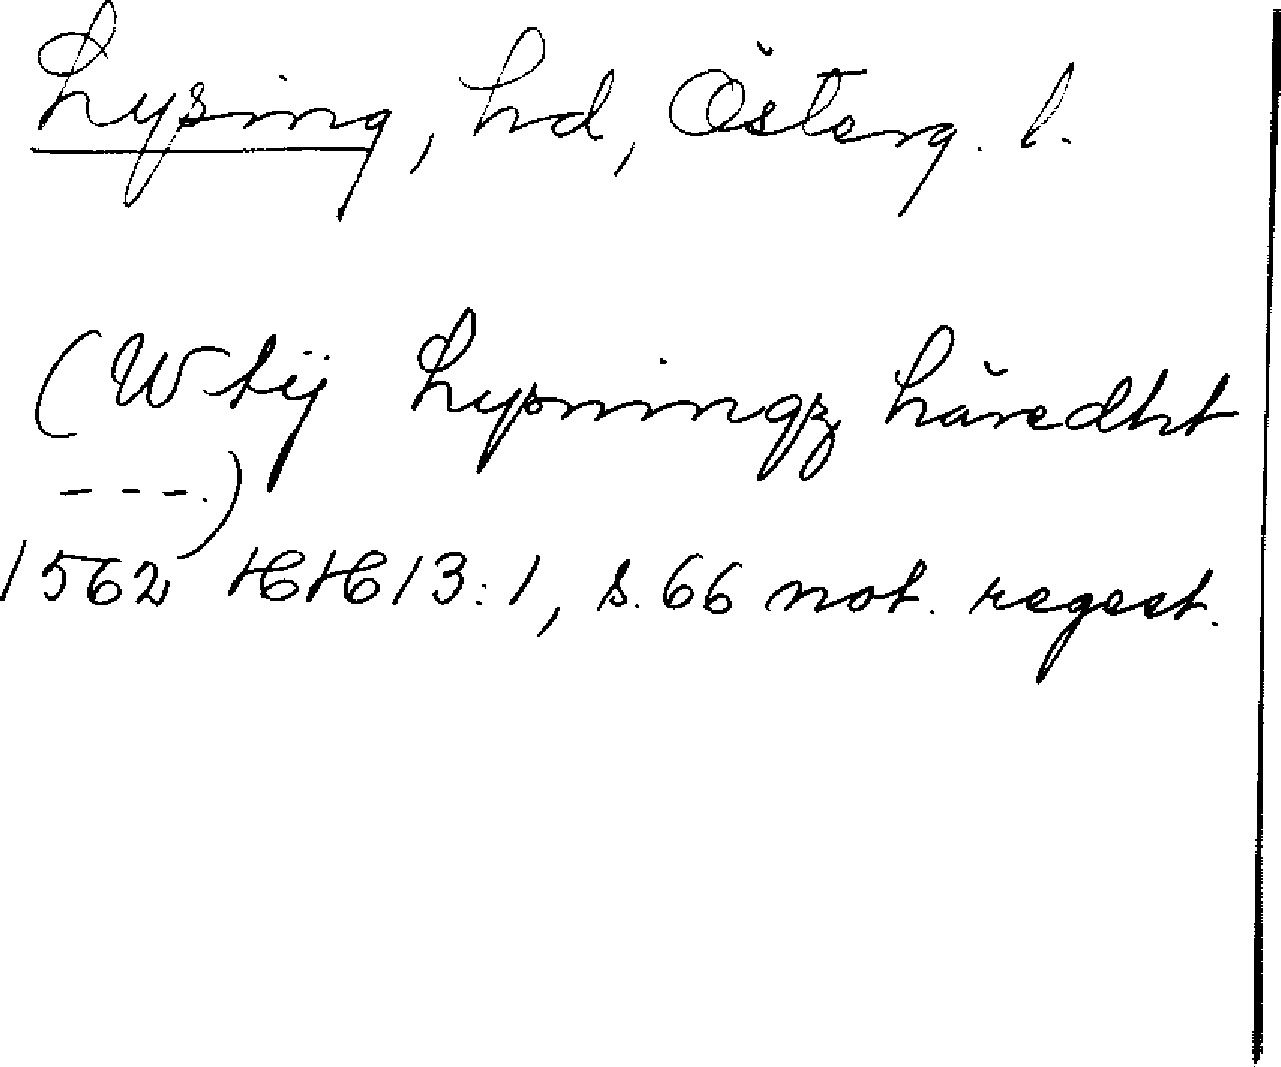 Lysing, hd, Österg. l.
(Wtij Lysningz häredht
---.)
1562 HH 13:1, s. 66 not. regest.